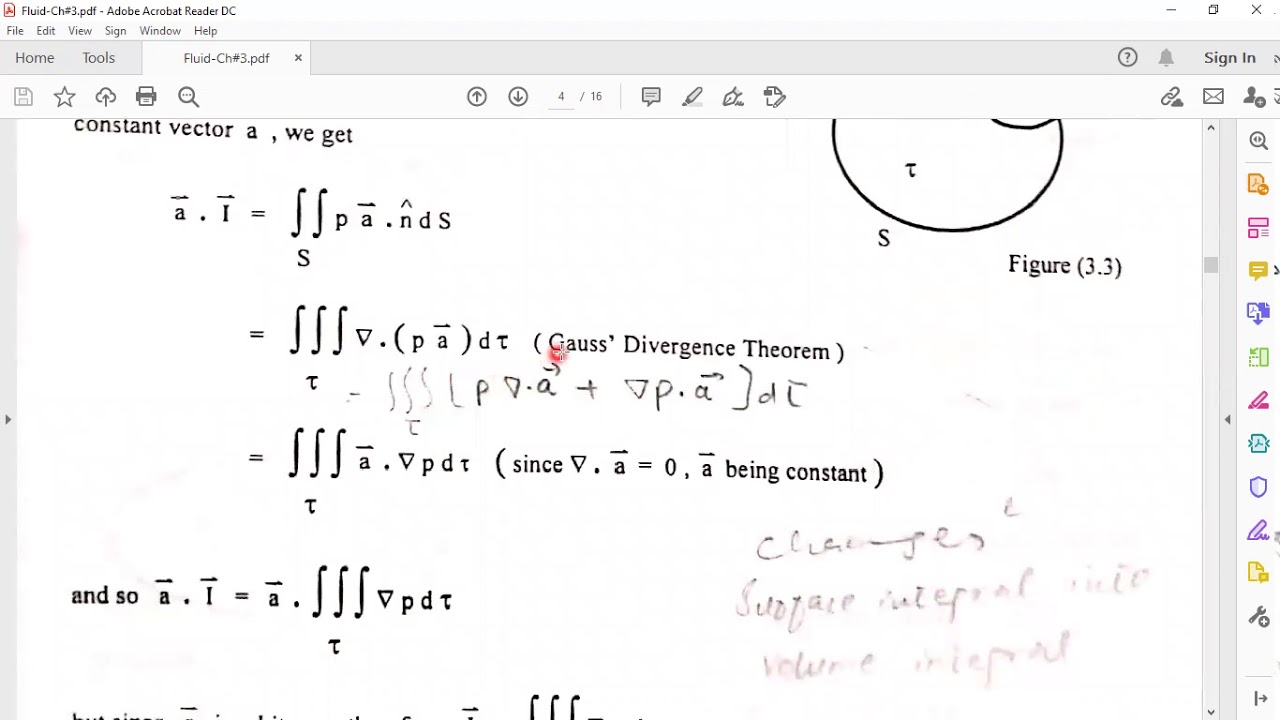 Fluid-Ch#3.pdf - Adobe Acrobat Reader DC
File Edit View Sign Window Help
Home Tools Fluid-Ch#3.pdf × Sign In
4 / 16
constant vector a , we get
τ
S
Figure (3.3)
a⃗ . I⃗ = ∬ p a⃗ . n̂ d S
S
= ∭ ∇ . ( p a⃗ ) d τ ( Gauss' Divergence Theorem )
τ
= ∭ [ p ∇ . a⃗ + ∇p . a⃗ ] d τ
τ
= ∭ a⃗ . ∇ p d τ ( since ∇ . a⃗ = 0 , a⃗ being constant )
τ
changes
Surface integral into
volume integral
and so a⃗ . I⃗ = a⃗ . ∭ ∇ p d τ
τ